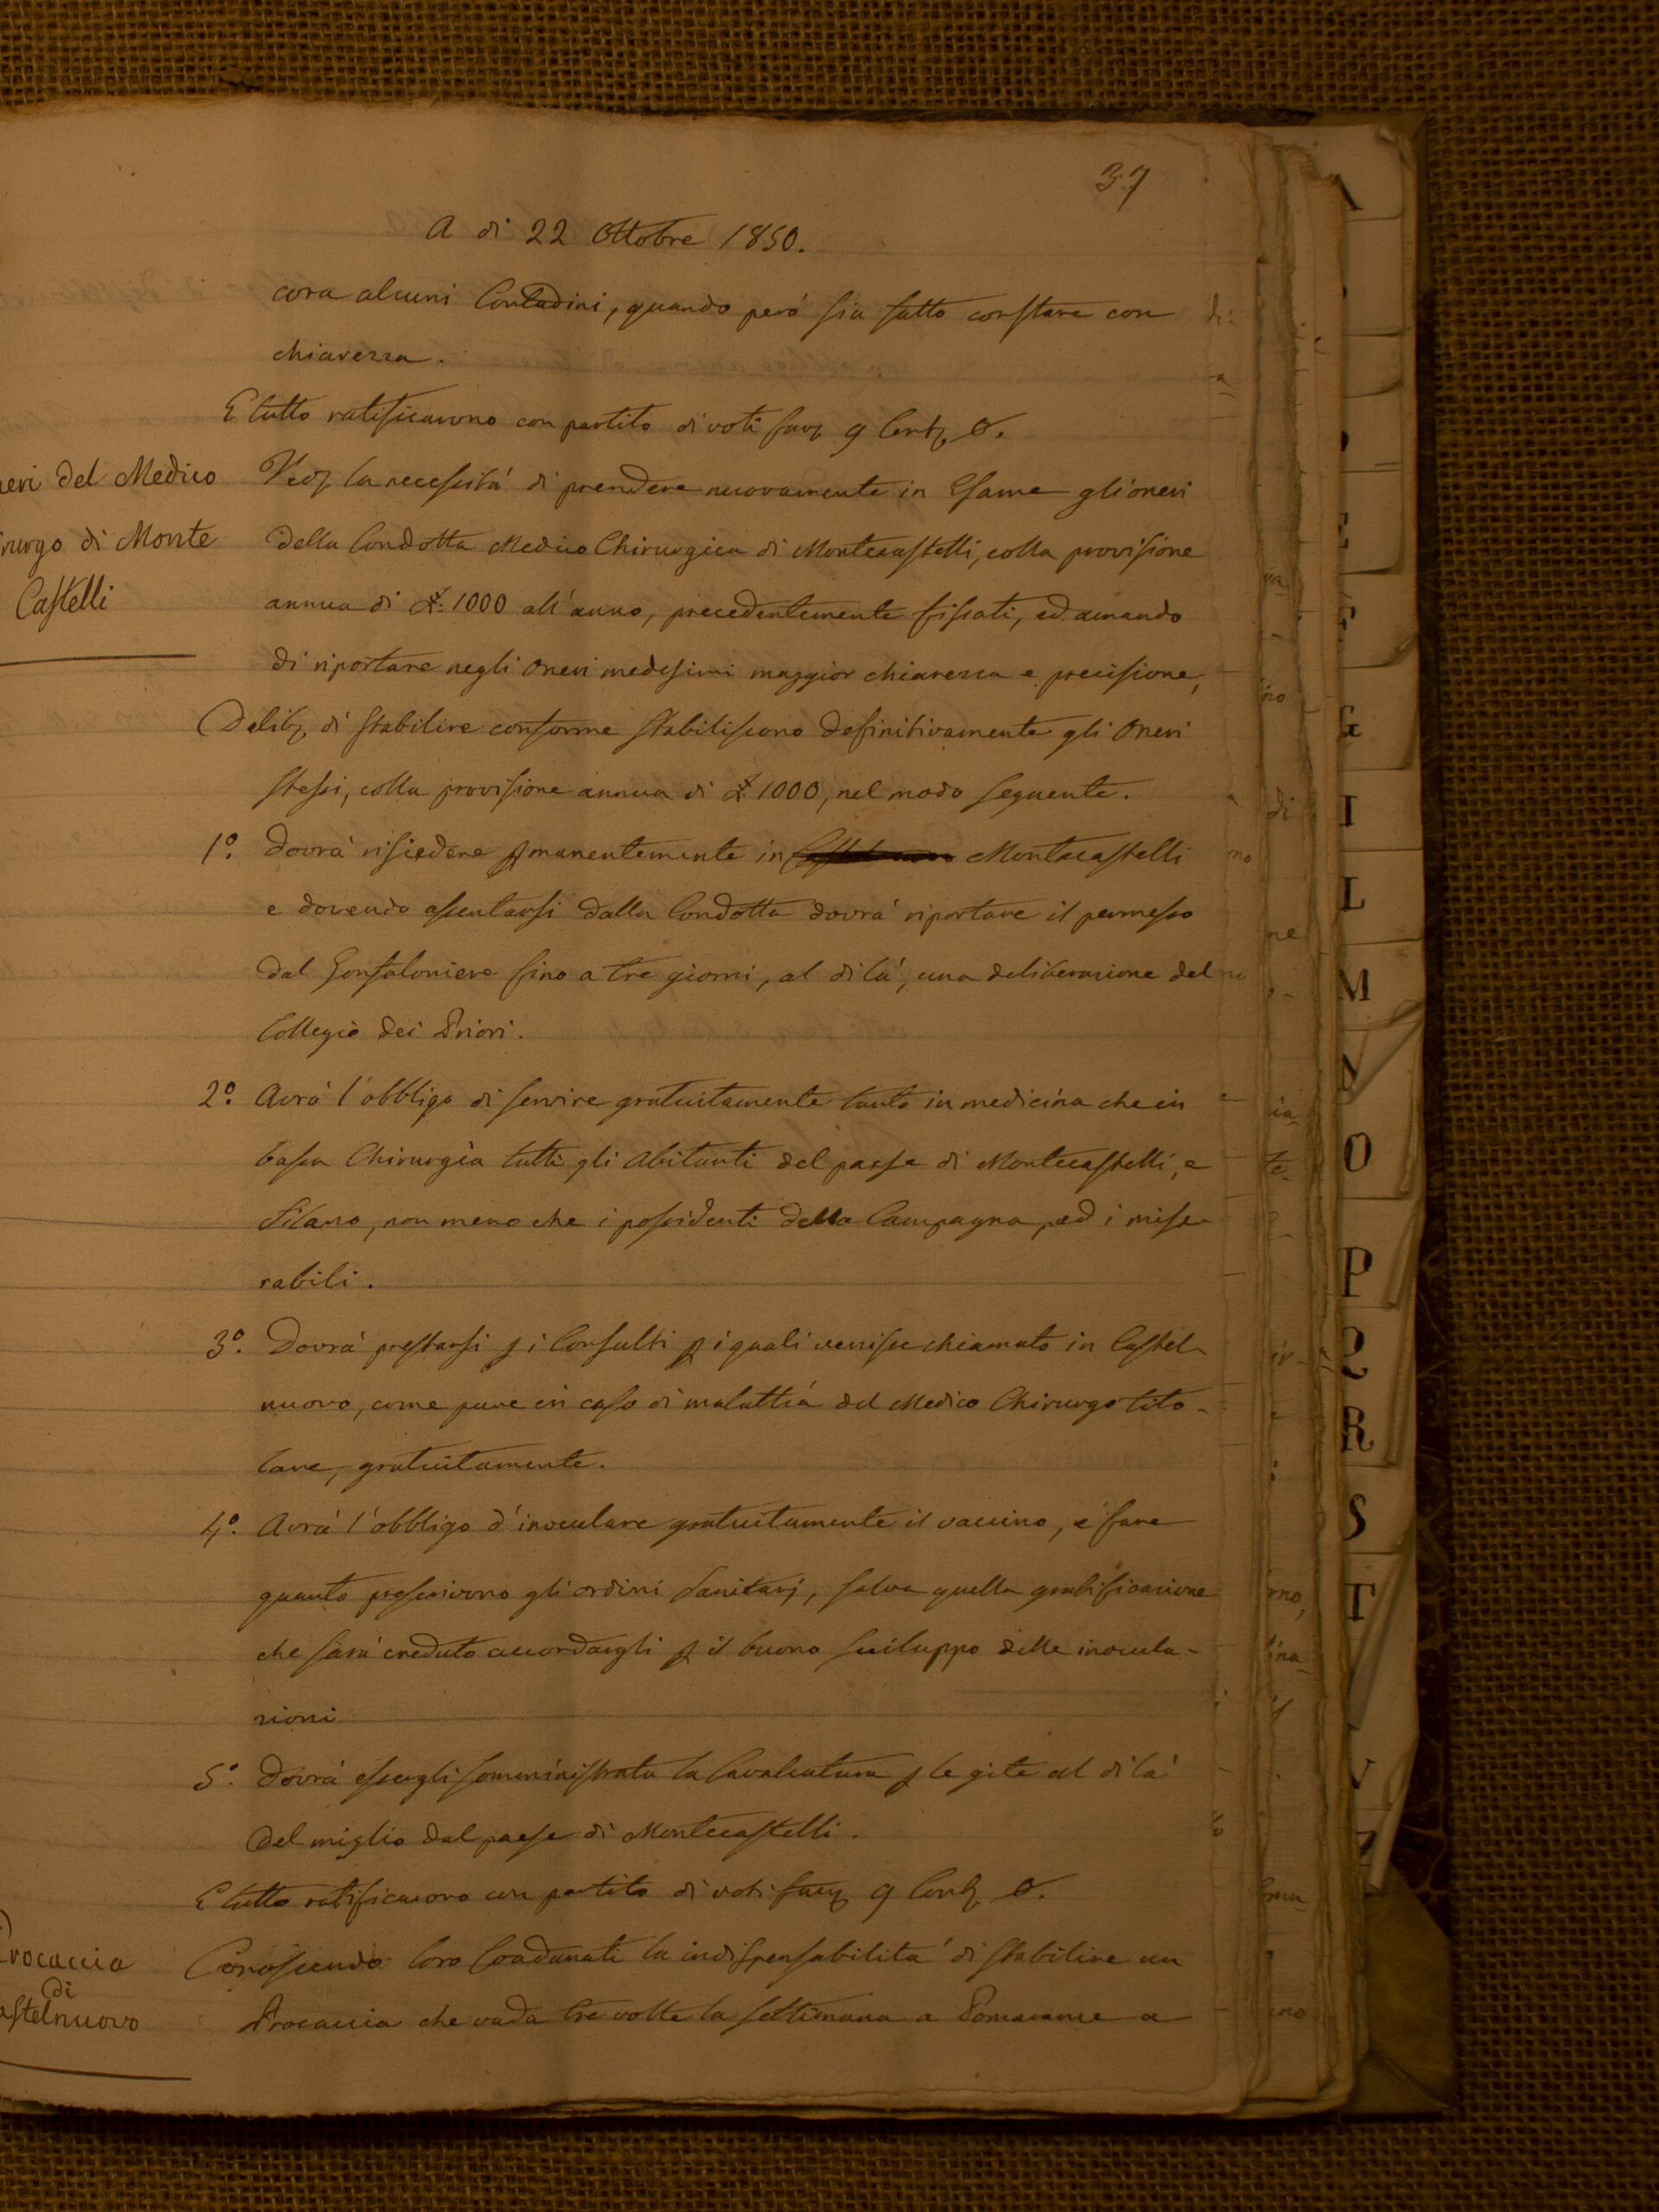 37
A di 22 Ottobre 1850.
cora alcuni Contadini, quando però sia fatto constare con
chiarezza.
E tutto ratificarono con partito di voti fav; 9 Cont; 0.
eri del Medico
rurgo di Monte
Castelli
Ved; la necessità di prendere nuovamente in Esame gli oneri
della Condotta Medico Chirurgica di Montecastelli, colla provisione
annua di £: 1000 all'anno, precedentemente fissati, ed amando
di riportare negli Oneri medesimi maggior chiarezza e precisione,
Delib; di stabilire conforme stabiliscono definitivamente gli Oneri
stessi, colla provisione annua di £ 1000, nel modo seguente.
1º. Dovrà risiedere pmanentemente in Montecastelli
e dovendo assentarsi dalla Condotta dovrà riportare il permesso
dal Gonfaloniere fino a tre giorni, al di là, una deliberazione del
Collegio dei Priori.
2º. Avrà l'obbligo di servire gratuitamente tanto in medicina che in
bassa Chirurgia tutti gli Abitanti del paese di Montecastelli, e
Silano, non meno che i possidenti della Campagna, ed i mise-
rabili.
3º. Dovrà prestarsi p i Consulti p i quali venisse chiamato in Castel-
nuovo, come pure in caso di malattia del Medico Chirurgo tito-
lare, gratuitamente.
4º. Avrà l'obbligo d'inoculare gratuitamente il vaccino, e fare
quanto prescrivono gli ordini Sanitarj, salva quella gratificazione
che sarà creduto accordargli p il buono sviluppo delle inocula-
zioni
5º. Dovrà essergli somministrata la Cavalcatura p le gite al di là
del miglio dal paese di Montecastelli.
E tutto ratificarono con partito di voti fav; 9 Cont; 0.
Procaccia
di
astelnuovo
Conoscendo loro Coadunati la indispensabilità di stabilire un
Procaccia che vada tre volte la settimana a Pomarance a
E
F
G
I
L
M
N
O
P
Q
R
S
T
V
Z